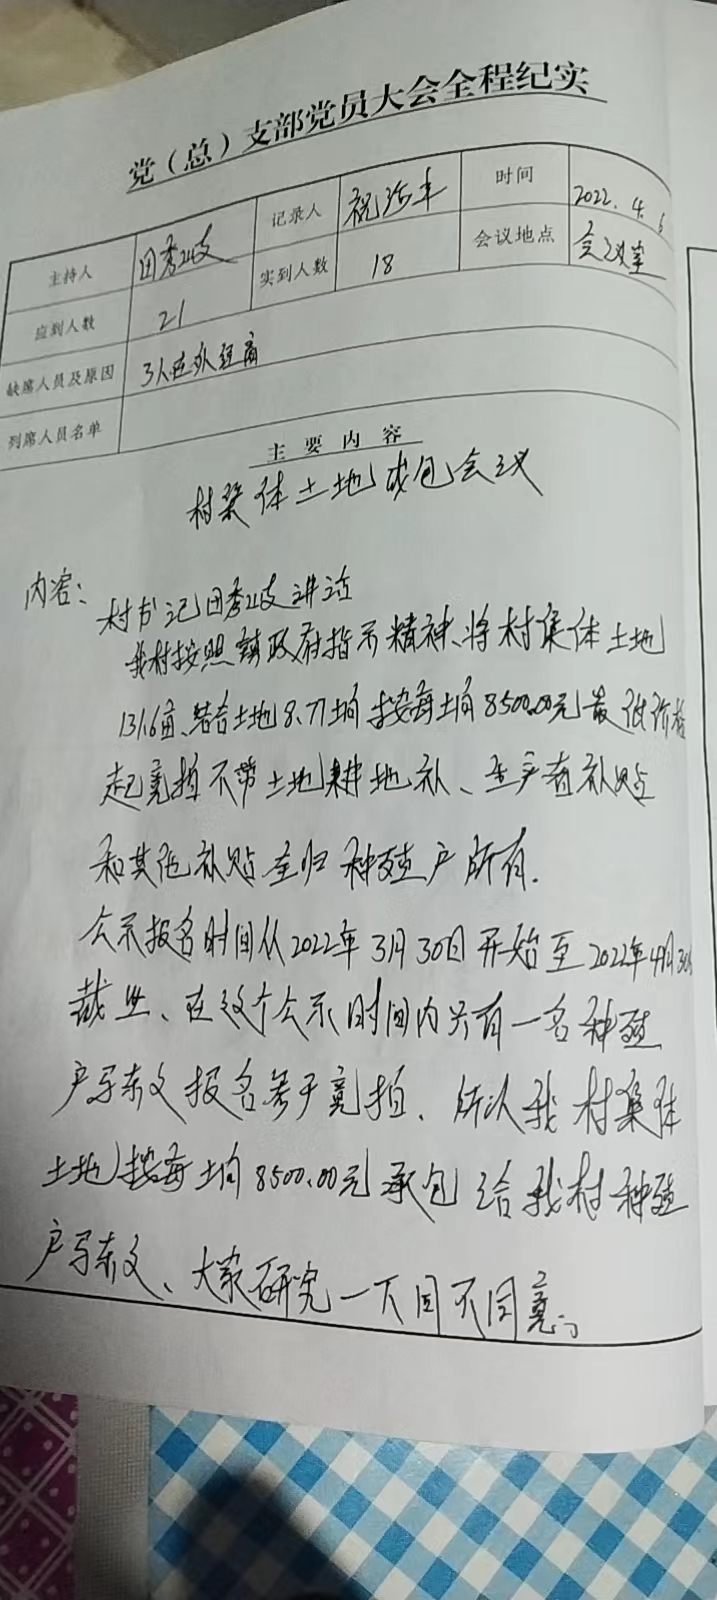 党（总）支部党员大会全程纪实
主持人 田秀岐 记录人 祝 时间 2022.4.6
应到人数 21 实到人数 18 会议地点 会议室
缺席人员及原因 3人在外经商
列席人员名单
主要内容
村集体土地成包会议
内容：
村书记田秀岐讲话
我村按照镇政府指示精神、将村集体土地
131.6亩、结合土地8.77垧按每垧8500.00元最低价格
起竟拍不带土地耕地补、生产者补贴
和其他补贴全归种植户所有.
公示报名时间从2022年3月30日开始至2022年4月30日
截止、在这个公示时间内只有一名种植
户东文报名参于竟拍、所以我村集体
土地按每垧8500.00元承包给我村种植
户东文、大家研究一下同不同意。